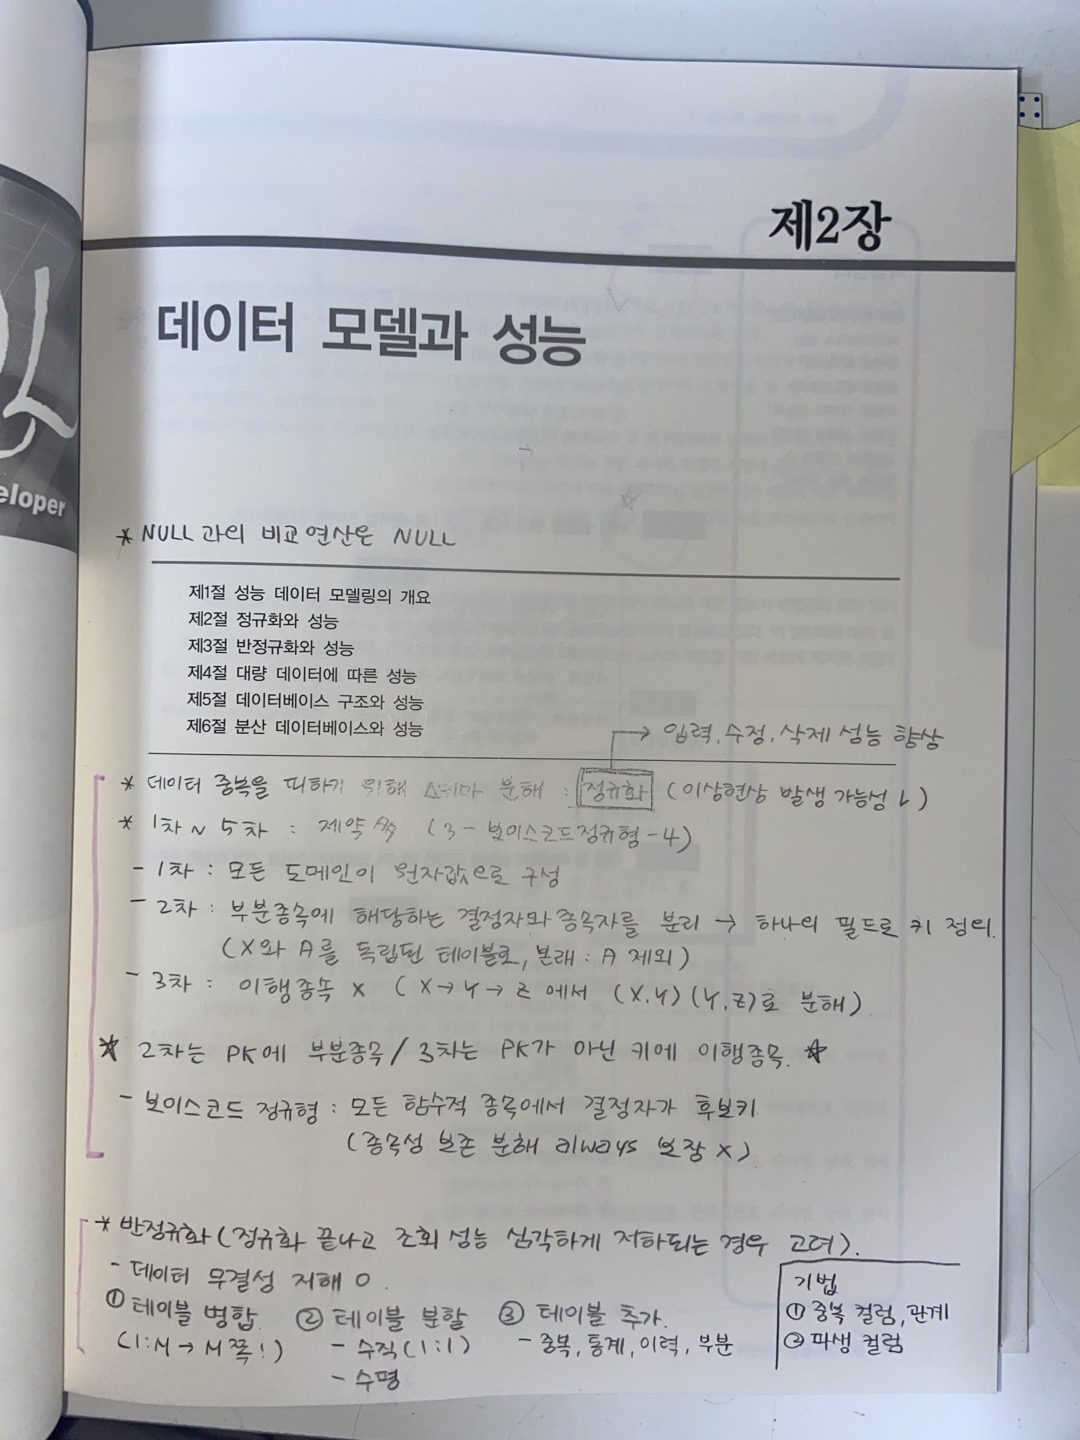 제2장
데이터 모델과 성능
eloper
* NULL과의 비교연산은 NULL
제1절 성능 데이터 모델링의 개요
제2절 정규화와 성능
제3절 반정규화와 성능
제4절 대량 데이터에 따른 성능
제5절 데이터베이스 구조와 성능
제6절 분산 데이터베이스와 성능
→ 입력, 수정, 삭제 성능 향상
* 데이터 중복을 피하기 위해 스키마 분해 : 정규화 (이상현상 발생 가능성 ↓)
* 1차 ~ 5차 : 제약 多 (3 - 보이스코드정규형 - 4)
- 1차 : 모든 도메인이 원자값으로 구성
- 2차 : 부분종속에 해당하는 결정자와 종속자를 분리 → 하나의 필드로 키 정의.
(X와 A를 독립된 테이블로, 본래 : A 제외)
- 3차 : 이행종속 x ( X → Y → Z 에서 (X,Y) (Y,Z)로 분해)
★ 2차는 PK에 부분종속 / 3차는 PK가 아닌 키에 이행종속. ★
- 보이스코드 정규형 : 모든 함수적 종속에서 결정자가 후보키
(종속성 보존 분해 always 보장 x)
* 반정규화 (정규화 끝나고 조회 성능 심각하게 저하되는 경우 고려).
- 데이터 무결성 저해 O.
① 테이블 병합. ② 테이블 분할 ③ 테이블 추가.
(1:M → M쪽!) - 수직(1:1) - 중복, 통계, 이력, 부분
- 수평
기법
① 중복 컬럼, 관계
② 파생 컬럼